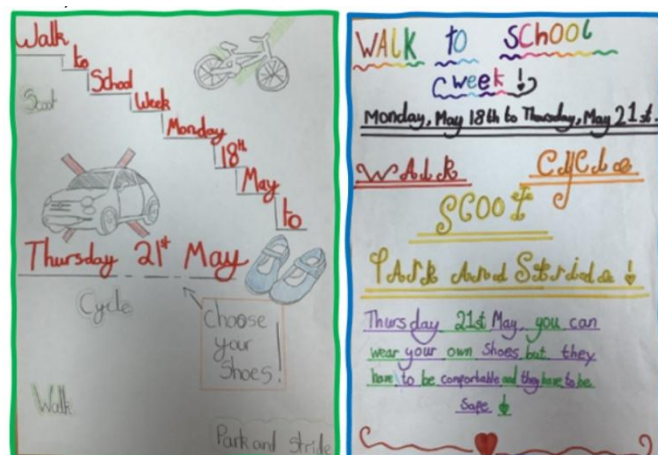 Walk
to
School
Week
Monday
18th
May
to
Scoot
Thursday 21st May
Cycle
Choose
your
Shoes!
Walk
Park and Stride
WALK to SChOOL
week!
Monday, May 18th to Thursday, May 21st.
WAlk CyCle
SCOOt
PArk And Stride!
Thursday 21st May, you can
wear your own Shoes but they
have to be comfortable and they have to be
Safe!